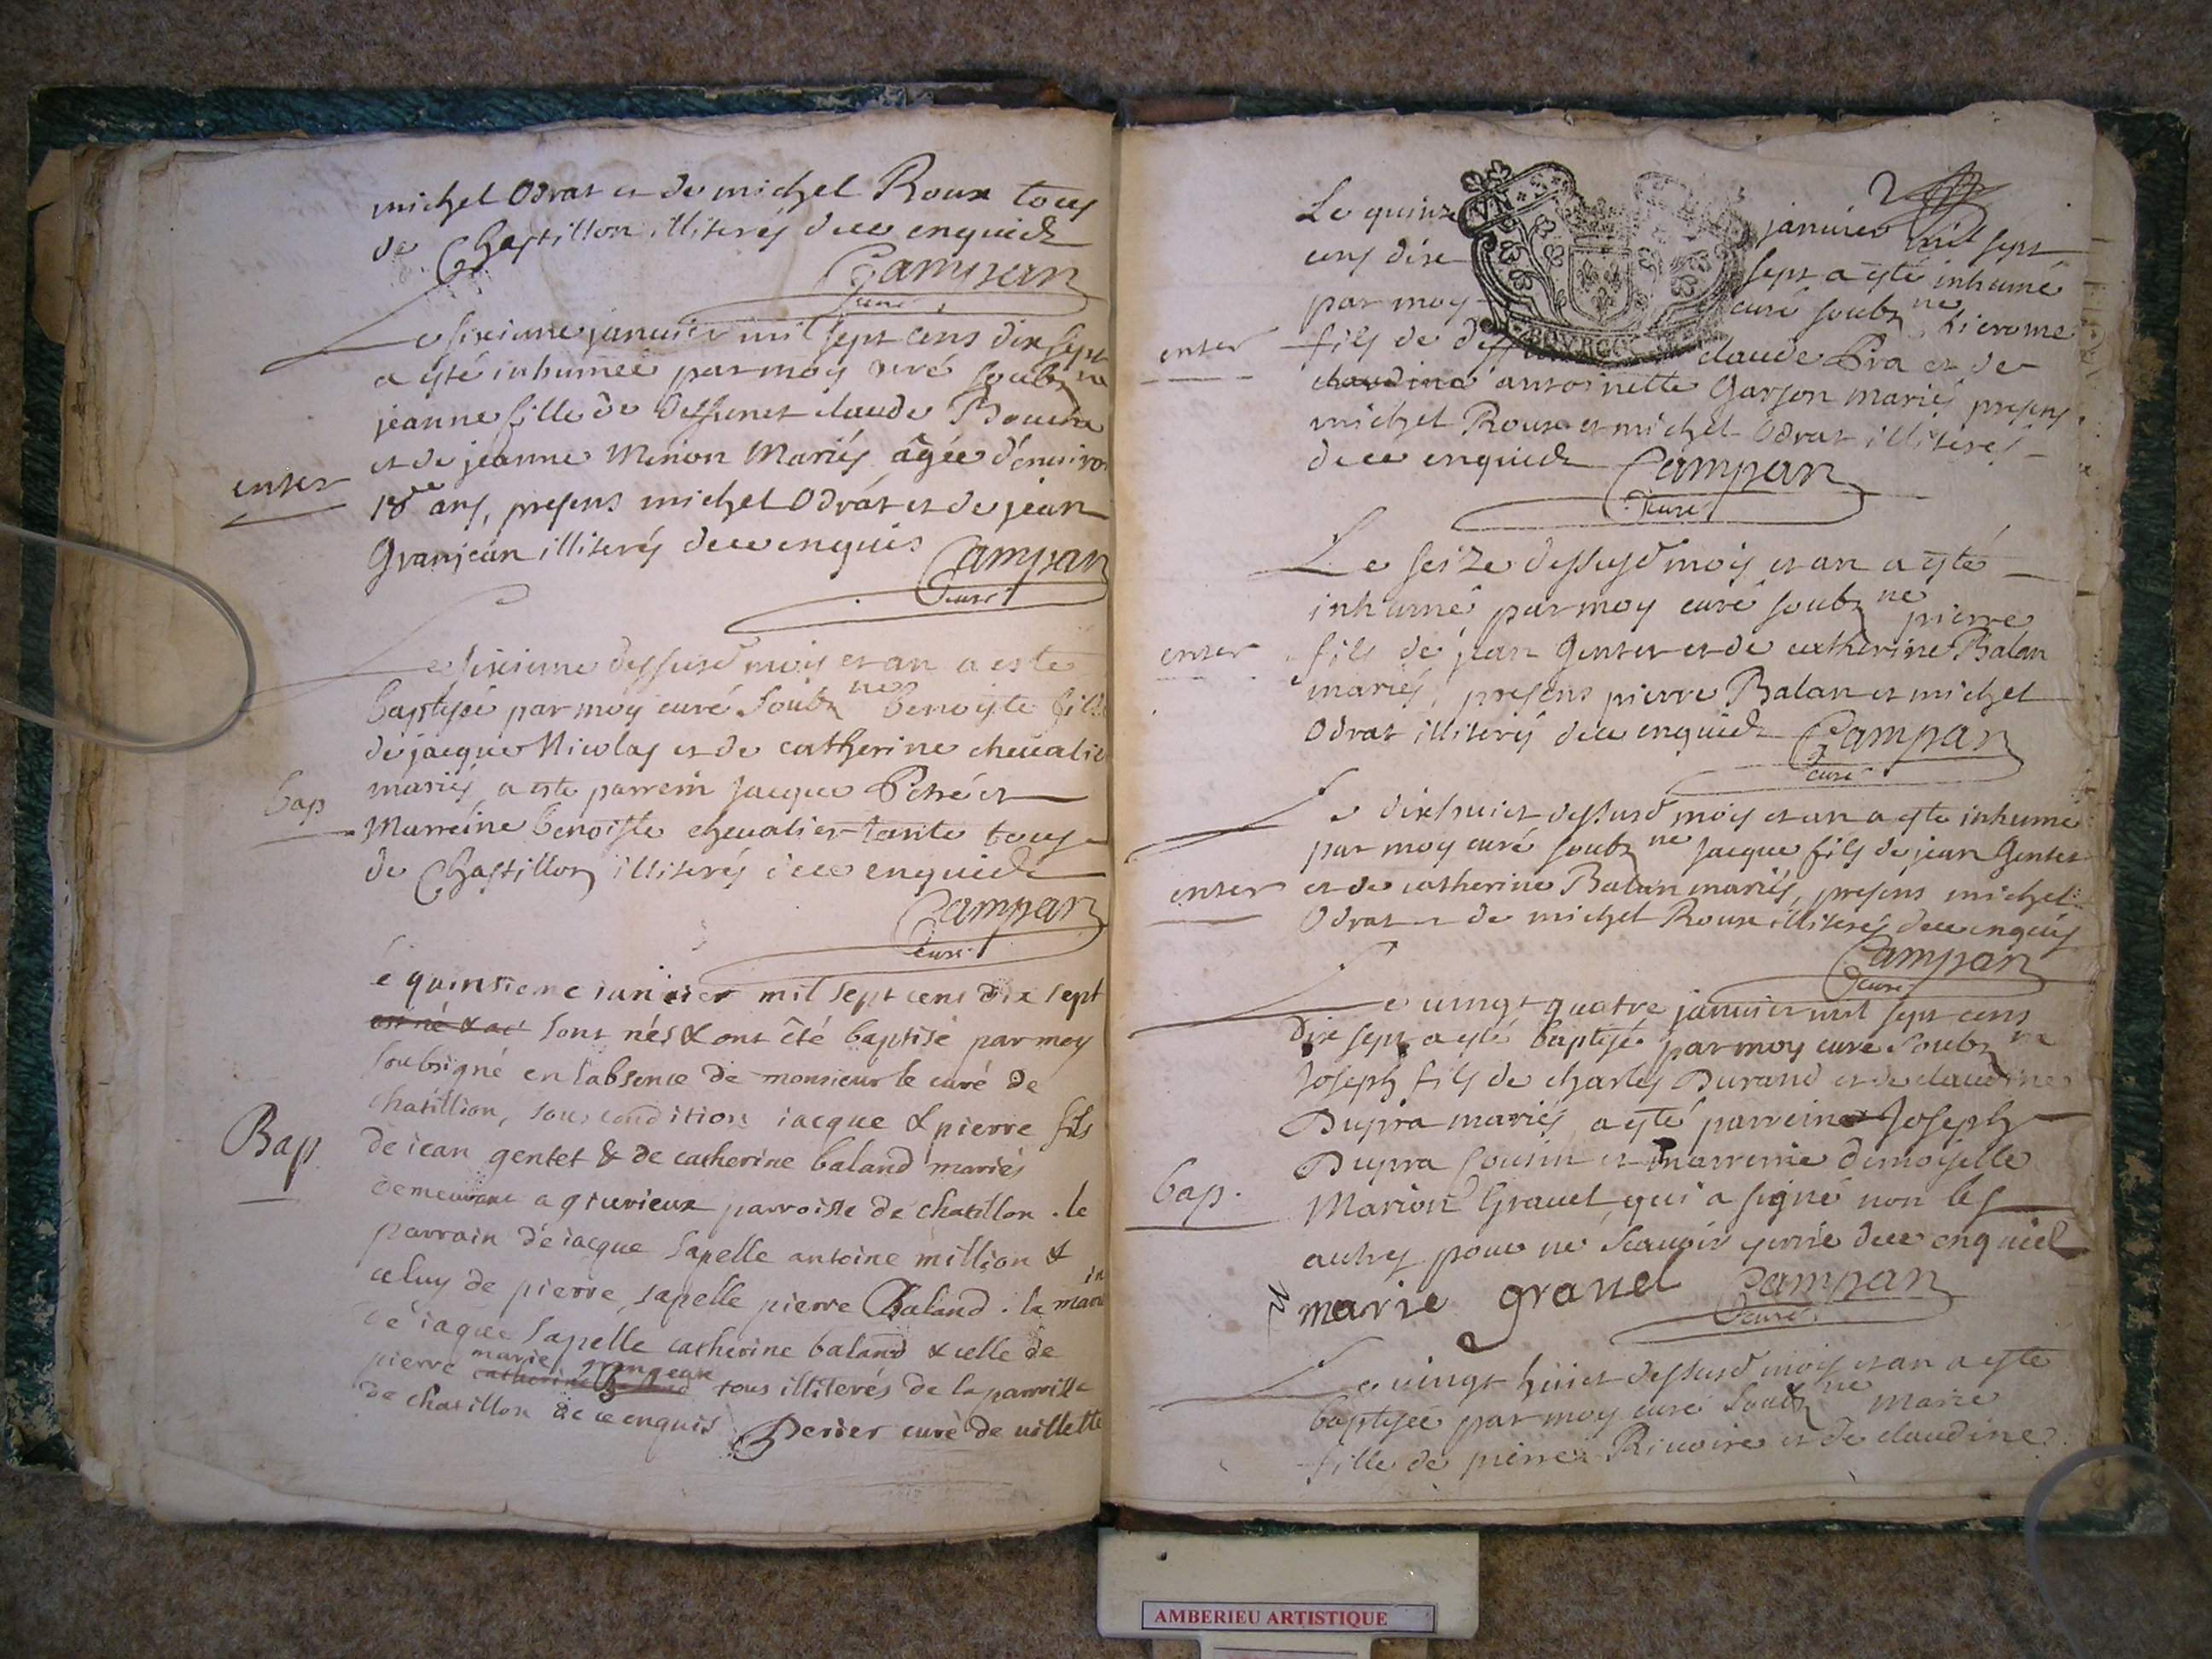 michel Odrat et de michel Roux tous
de Chastillon illiterés de ce enquiets
Campan
curé
Le sixieme janvier mil sept cens dix sept
a ÿté inhumée par moy curé soubz ne
jeanne fille de deffunct claude
et de jeanne Minon Mariés âgée d'environ
enter
18 ans, presens michel Odrat et de jean
Granjean illiterés de ce enquis Campan
curé
Le sixieme dessusd mois et an a este
baptisé par moy curé soubz ne benoyte fille
de jacque Nicolas et de catherine chevalie
bap
mariés, a este parrein jacque et
Marreine benoiste chevalier tante tous
de Chastillon illiterés de ce enquiets
Campan
curé
le quinsieme ianvier mil sept cens dix sept
est né & a et sont nés & ont êté baptisé par moy
soubsigné en l'absence de monsieur le curé de
chatillion, sous condition iacque & pierre fils
Bap
de iean gentet & de catherine baland mariés
demeurant a giurieux parroisse de chatillon . le
parrain de iacque sapelle antoine million &
celuy de pierre sapelle pierre Baland . la mar in
de iaque sapelle catherine baland & celle de
marie grangean
pierre catherine tous illiterés de la parroisse
de chatillon de ce enquis Perier curé de villette
2
Le quinze janvier mil sept
cens dix sept a ÿté inhumé
par moy curé soubz ne hierome
enter
fils de deff claude Pra et de
claudine antoinette Garson mariés presens
michel Roux et michel Odrat illiterés
de ce enquiets Campan
curé
Le seize dessusd mois et an a ÿté
inhumé par moy curé soubz ne pierre
enter
fils de jean Gentet et de catherine Balan
mariés, presens pierre Balan et michel
Odrat illiterés de ce enquiets Campan
curé
Le dixhuict dessusd mois et an a ÿte inhumé
par moy curé soubz ne jacque fils de jean Gentet
enter
et de catherine Balan mariés, presens michel
Odrat et de michel Roux illiterés de ce enquis
Campan
curé
Le vingt quatre janvier mil sept cens
dix sept a ÿté baptisé par moy curé soubz ne
Joseph fils de charles Durand et de claudine
Dupra mariés a ÿté parrein Joseph
Dupra cousin et marreine demoiselle
bap.
Marion Gravel qui a signé non les
autres pour ne sçavoir de ce enquiet
marie gravel Campan
curé
Le vingt huict dessusd mois et an a ÿté
baptisée par moy curé soubz ne marie
fille de pierre Rivoire et de claudine
AMBERIEU ARTISTIQUE